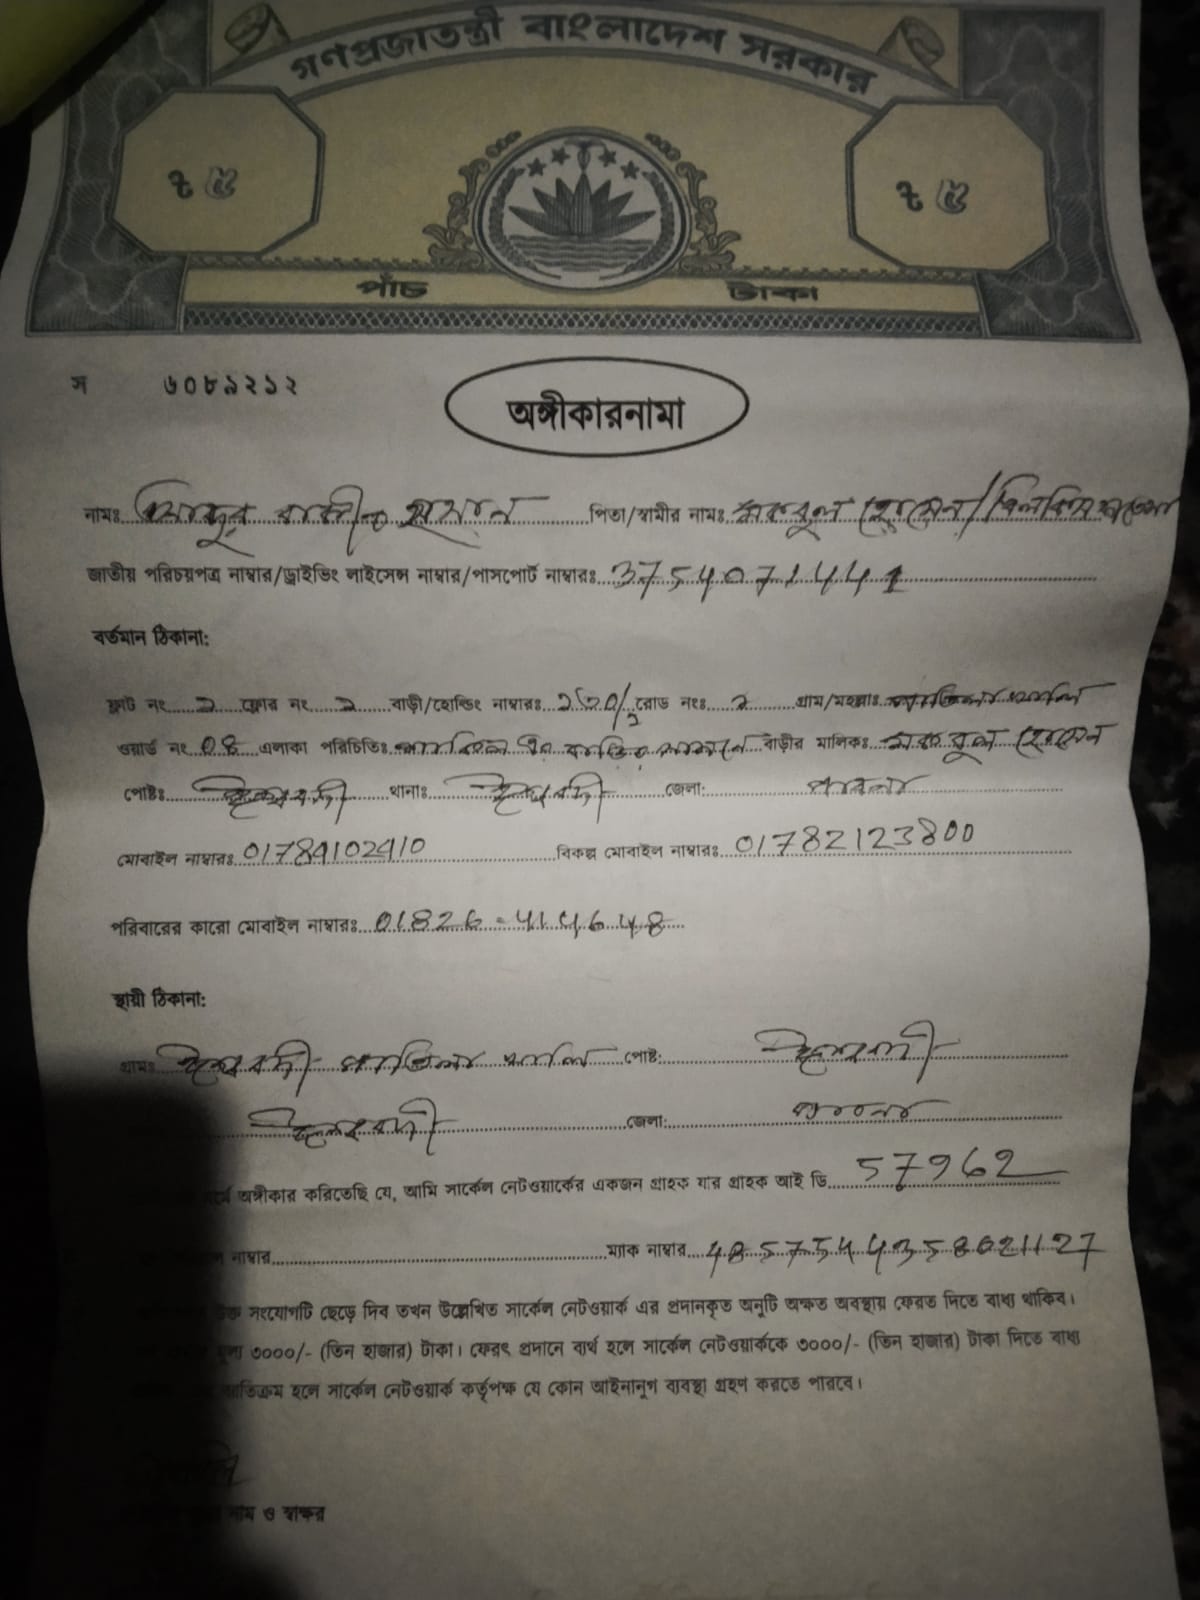 গণপ্রজাতন্ত্রী বাংলাদেশ সরকার
৳ ৫ ৳ ৫
পাঁচ টাকা
স ৬০৮৯২১২
অঙ্গীকারনামা
নামঃ পিতা/স্বামীর নামঃ মকবুল হোসেন/
জাতীয় পরিচয়পত্র নাম্বার/ড্রাইভিং লাইসেন্স নাম্বার/পাসপোর্ট নাম্বারঃ 3754071441
বর্তমান ঠিকানা:
ফ্লাট নং ২ ফ্লোর নং ২ বাড়ী/হোল্ডিং নাম্বারঃ রোড নংঃ ২ গ্রাম/মহল্লাঃ
ওয়ার্ড নং 04 এলাকা পরিচিতিঃ বাড়ীর মালিকঃ মকবুল হোসেন
পোষ্টঃ ঈশ্বরদী থানাঃ ঈশ্বরদী জেলা: পাবনা
মোবাইল নাম্বারঃ 01784102410 বিকল্প মোবাইল নাম্বারঃ 01782123800
পরিবারের কারো মোবাইল নাম্বারঃ 01826-414648
স্থায়ী ঠিকানা:
গ্রামঃ ঈশ্বরদী পোষ্ট: ঈশ্বরদী
ঈশ্বরদী জেলা: পাবনা
মর্মে অঙ্গীকার করিতেছি যে, আমি সার্কেল নেটওয়ার্কের একজন গ্রাহক যার গ্রাহক আই ডি 57962
নাম্বার ম্যাক নাম্বার
সংযোগটি ছেড়ে দিব তখন উল্লেখিত সার্কেল নেটওয়ার্ক এর প্রদানকৃত অনুটি অক্ষত অবস্থায় ফেরত দিতে বাধ্য থাকিব।
মূল্য ৩০০০/- (তিন হাজার) টাকা। ফেরৎ প্রদানে ব্যর্থ হলে সার্কেল নেটওয়ার্ককে ৩০০০/- (তিন হাজার) টাকা দিতে বাধ্য
ব্যতিক্রম হলে সার্কেল নেটওয়ার্ক কর্তৃপক্ষ যে কোন আইনানুগ ব্যবস্থা গ্রহণ করতে পারবে।
নাম ও স্বাক্ষর